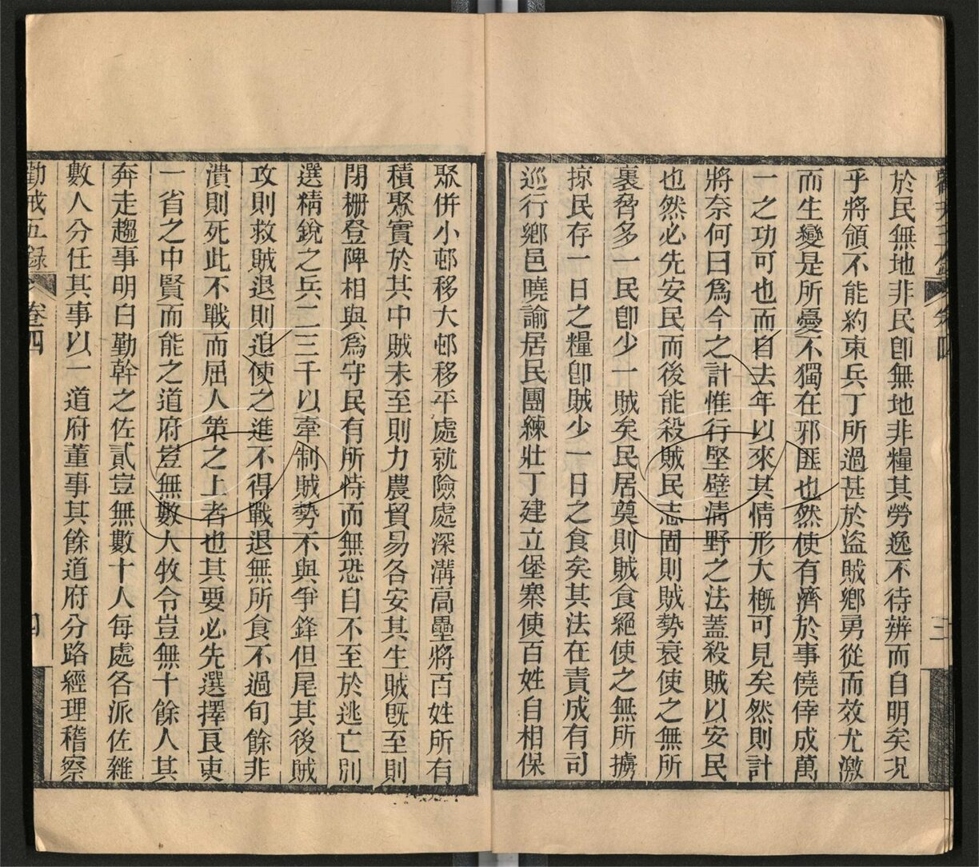 於民無地非民卽無地非糧其勞逸不待辨而自明矣况
乎將領不能約束兵丁所過甚於盜賊鄕勇從而效尤激
而生變是所憂不獨在邪匪也然使有濟於事僥倖成萬
一之功可也而自去年以來其情形大槪可見矣然則計
將奈何曰爲今之計惟行堅壁淸野之法蓋殺賊以安民
也然必先安民而後能殺賊民志固則賊勢衰使之無所
裹脅多一民卽少一賊矣民居奠則賊食絕使之無所擄
掠民存一日之糧卽賊少一日之食矣其法在責成有司
巡行鄕邑曉諭居民團練壯丁建立堡寨使百姓自相保
聚併小邨移大邨移平處就險處深溝高壘將百姓所有
積聚實於其中賊未至則力農貿易各安其生賊旣至則
閉柵登陴相與爲守民有所恃而無恐自不至於逃亡別
選精銳之兵二三千以牽制賊勢不與爭鋒但尾其後賊
攻則救賊退則追使之進不得戰退無所食不過旬餘非
潰則死此不戰而屈人策之上者也其要必先選擇良吏
一省之中賢而能之道府豈無數人牧令豈無十餘人其
奔走趨事明白勤幹之佐貳豈無數十人每處各派佐雜
數人分任其事以一道府董事其餘道府分路經理稽察
勸戒五錄 卷四 四